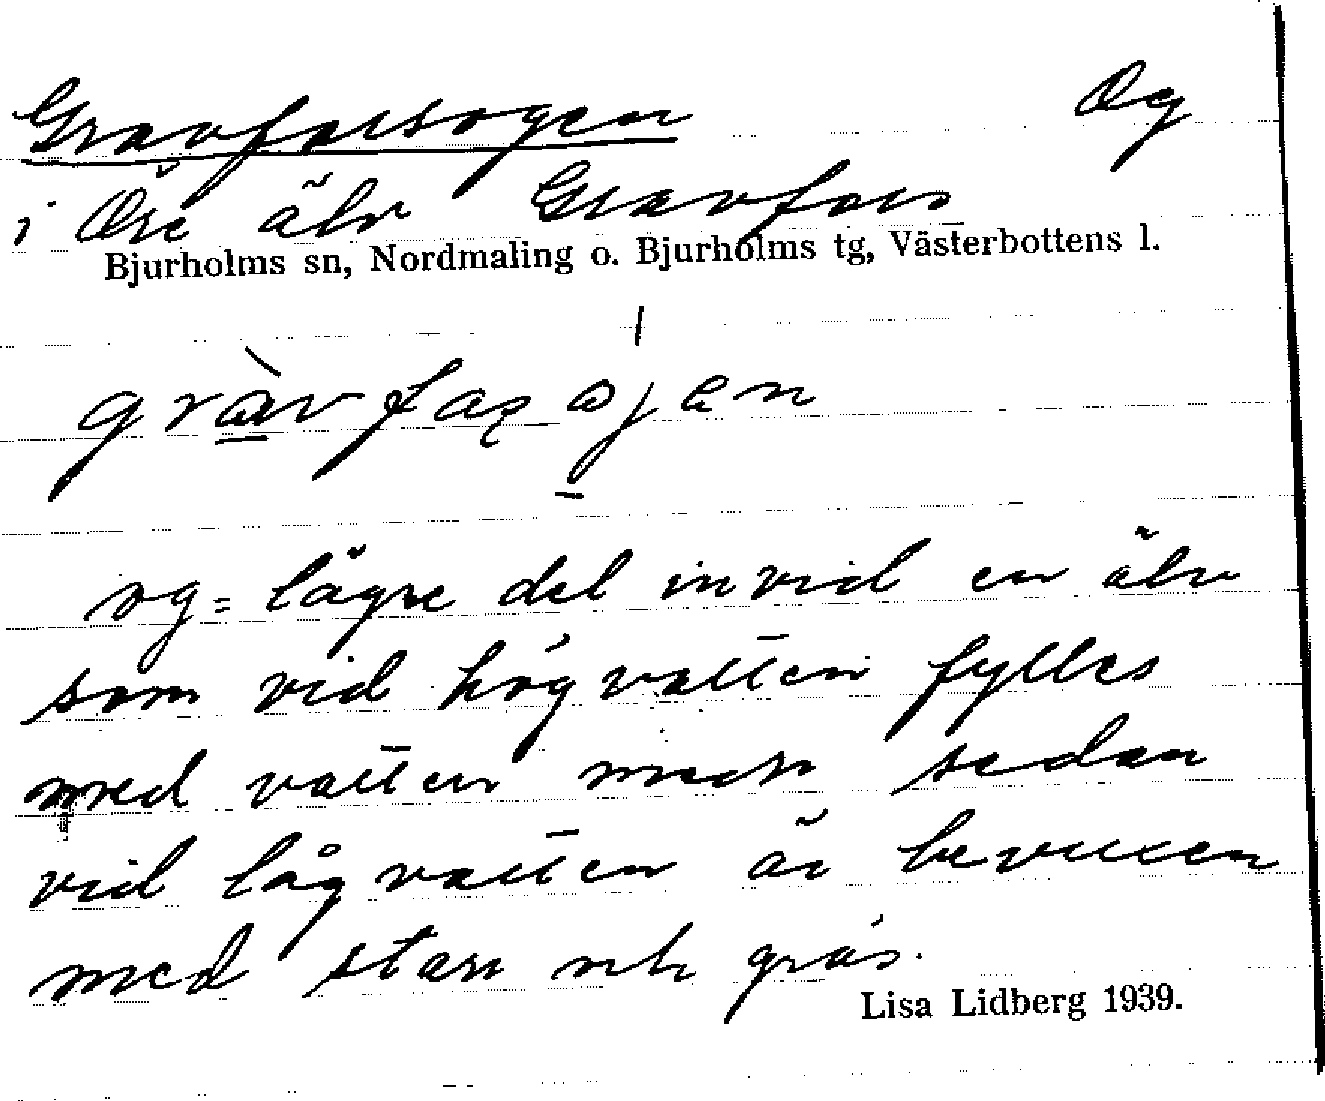 Gravforsogen Og
i Öre älv Gravfors
Bjurholms sn, Nordmaling o. Bjurholms tg, Västerbottens l.
og = lägre del invid en älv
som vid högvatten fylles
med vatten men sedan
vid lågvatten är bevuxen
med starr och gräs.
Lisa Lidberg 1939.